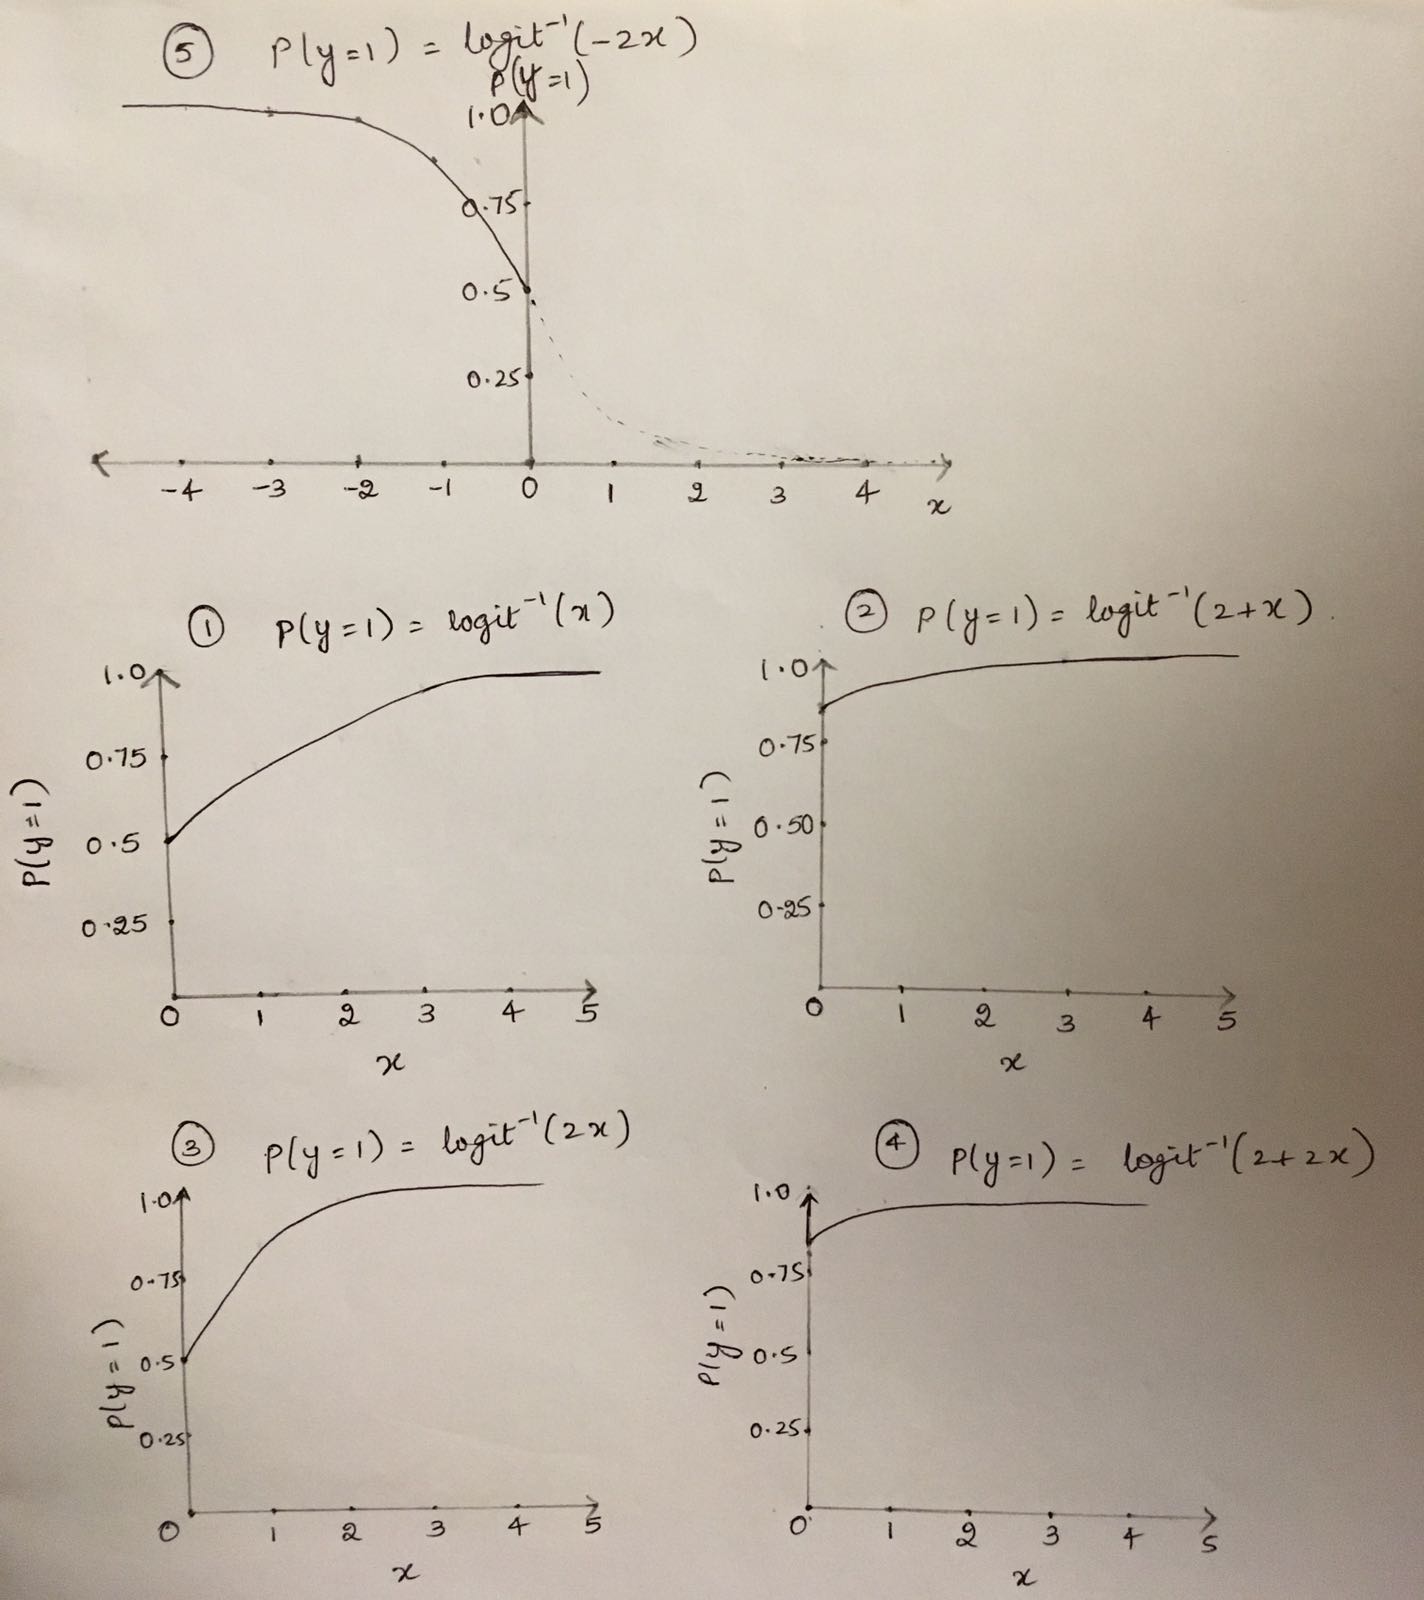 ⑤ P(y=1) = logit⁻¹(-2x)
P(y=1)
1.0
0.75
0.5
0.25
-4 -3 -2 -1 0 1 2 3 4
x
① P(y=1) = logit⁻¹(x)
1.0
0.75
0.5
0.25
P(y=1)
0 1 2 3 4 5
x
② P(y=1) = logit⁻¹(2+x).
1.0
0.75
0.50
0.25
P(y=1)
0 1 2 3 4 5
x
③ P(y=1) = logit⁻¹(2x)
1.0
0.75
0.5
0.25
P(y=1)
0 1 2 3 4 5
x
④ P(y=1) = logit⁻¹(2+2x)
1.0
0.75
0.5
0.25
P(y=1)
0 1 2 3 4 5
x